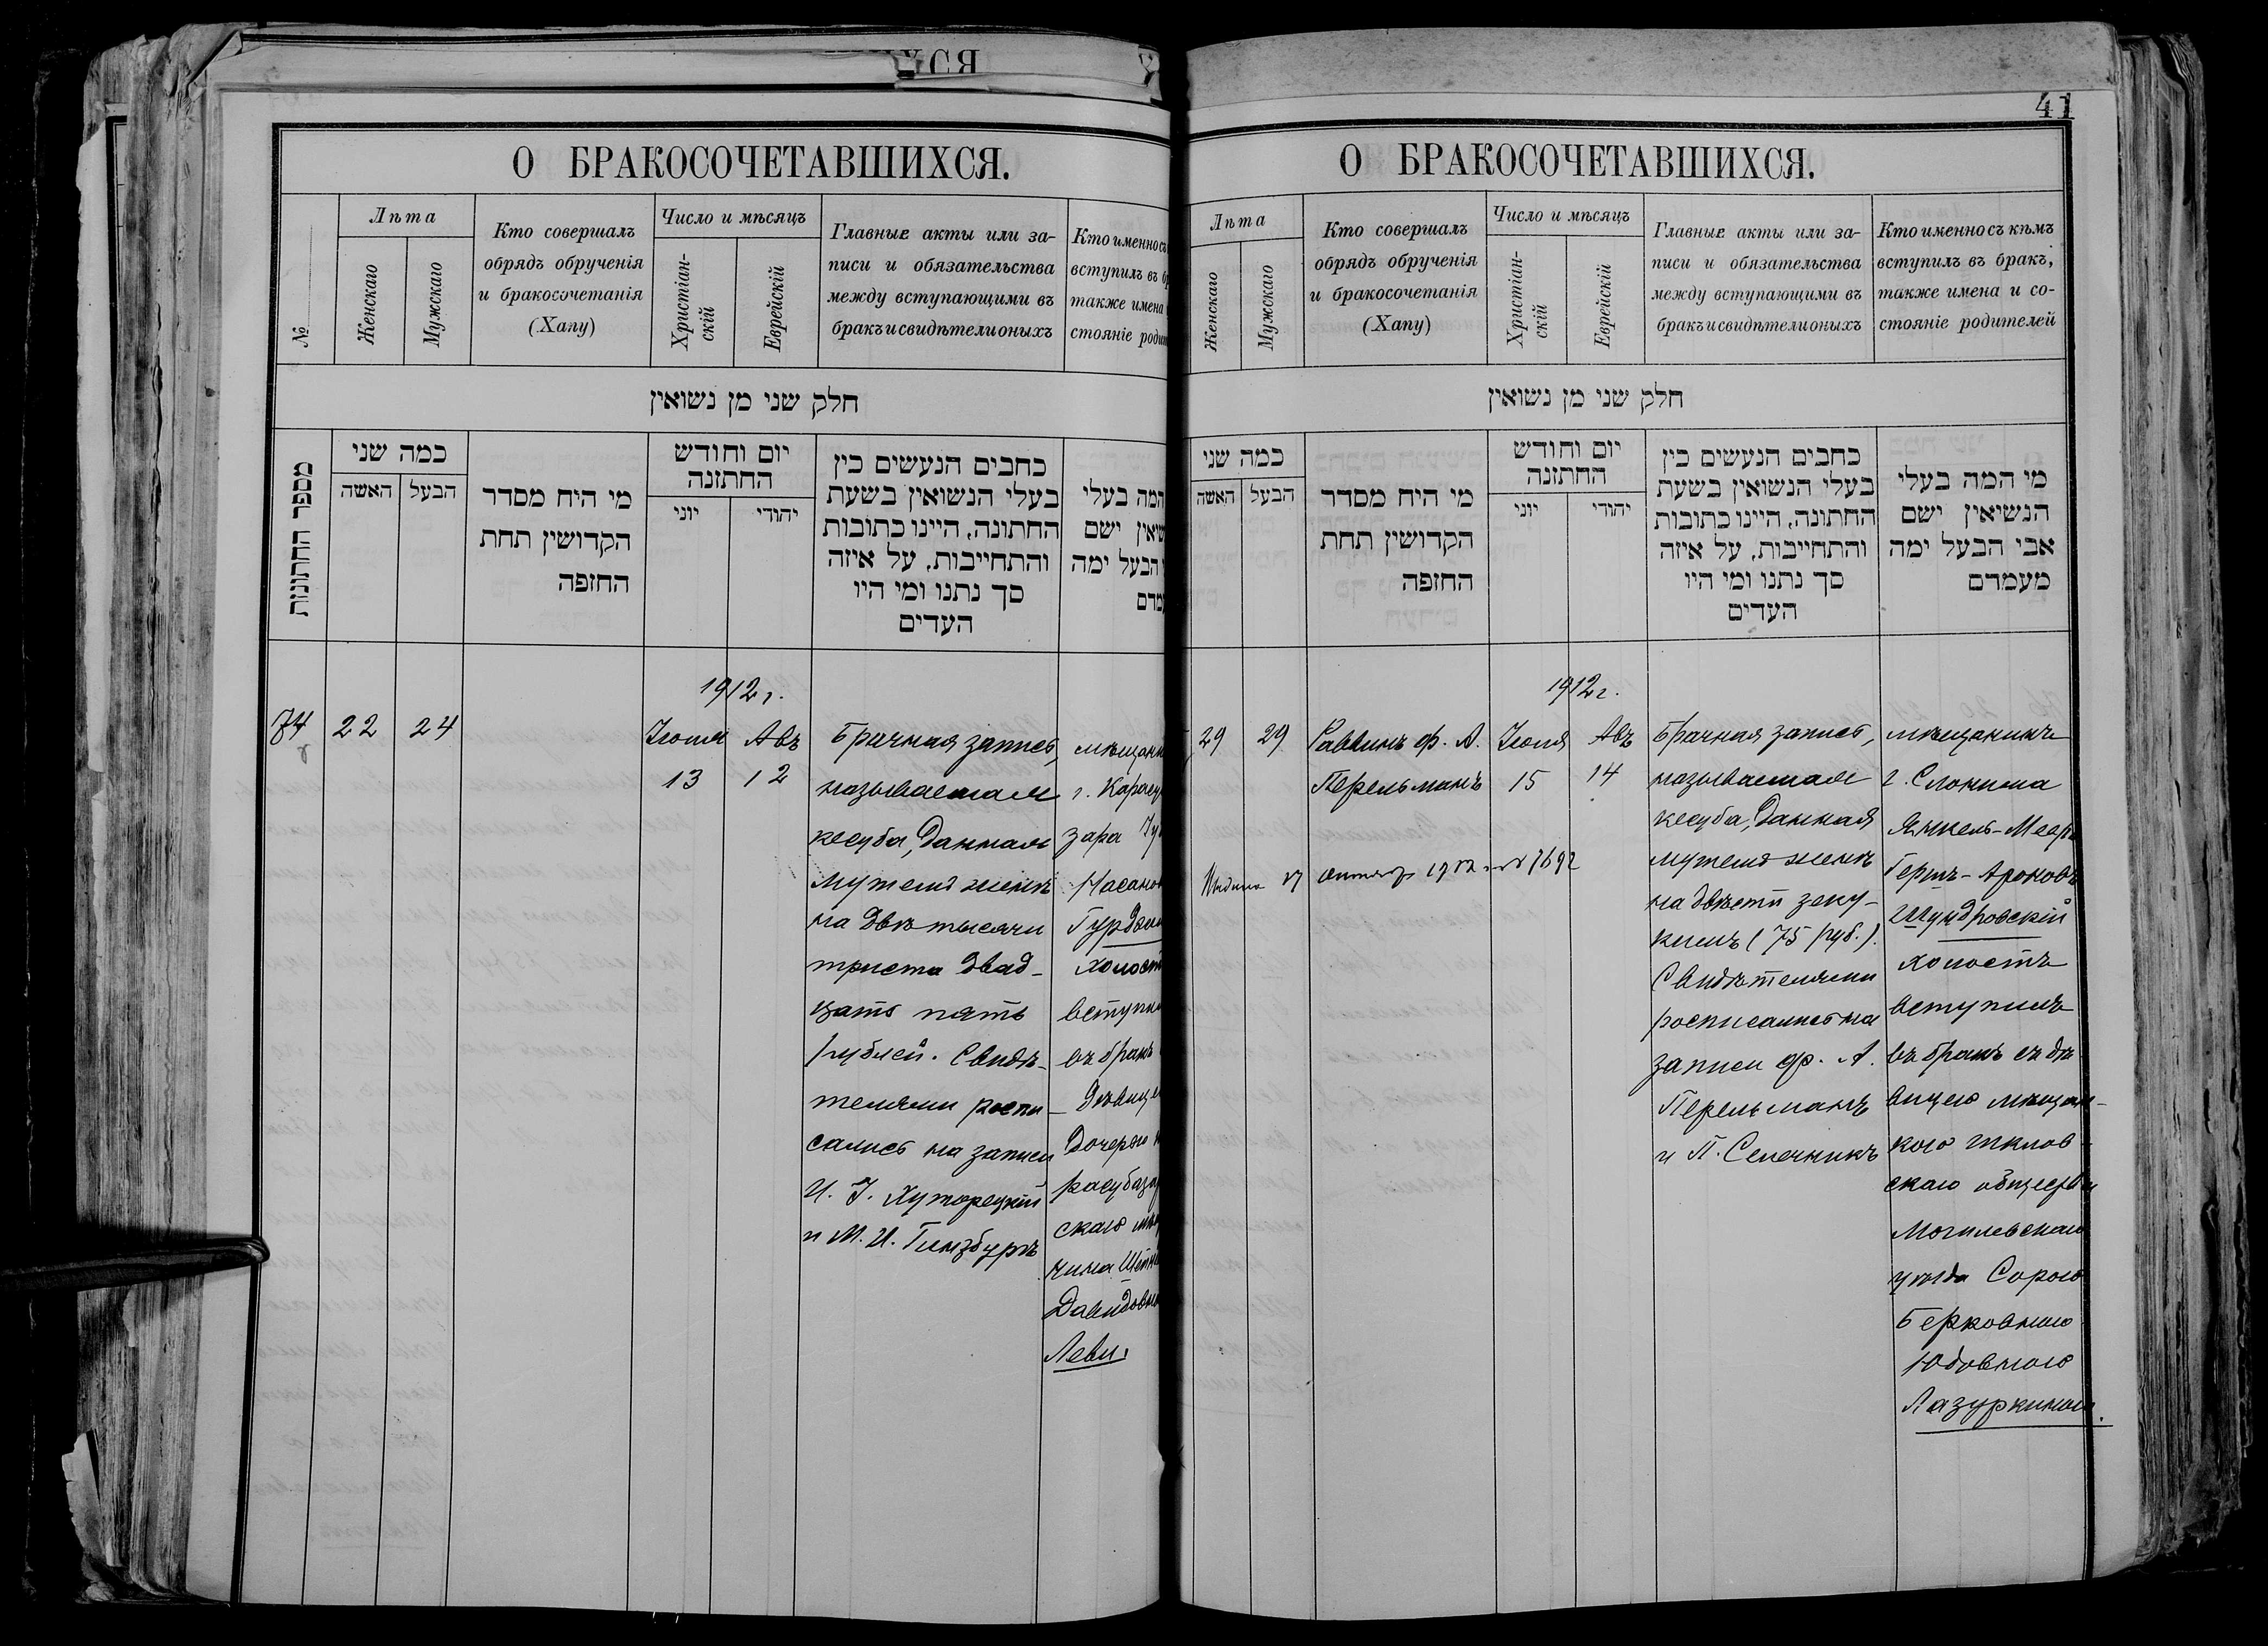 ХСЯ
О БРАКОСОЧЕТАВШИХСЯ.
№
Лѣта
Женскаго
Мужскаго
Кто совершалъ
обрядъ обрученія
и бракосочетанія
(Хапу)
Число и мѣсяцъ
Христіан-
скій
Еврейскій
Главные акты или за-
писи и обязательства
между вступающими въ
бракъ и свидѣтели оныхъ
Кто именно съ
вступилъ въ бр
также имена
стояніе родит
חלק שני מן נשואין
מספר החתונות
כמה שני
האשה
הבעל
מי היח מסדר
הקדושין תחת
החופה
יום וחודש
החתונה
יוני
יהודי
כחבים הנעשים כין
בעלי הנשואין בשעת
החתונה, היינו כתובות
והתחייבות, על איזה
סך נתנו ומי היו
העדים
המה בעלי
שיאין ישם
הבעל ימה
עמדם
1912 г.
74
22
24
Іюля
13
Авъ
12
Брачная запись,
называемая
кесуба, данная
мужемъ женѣ
на двѣ тысячи
триста двад-
цать пять
рублей. Свидѣ-
телями распи-
сались на записи
И. І. Хуторецкій
и М. И. Гинзбургъ
мѣщани
г. Карасу
зара
Насанов
Гурджи
холост
вступи
въ бракъ
дѣвице
дочерью К
расубазар
скаго мѣщ
нина
Давидовно
Леви.
41
О БРАКОСОЧЕТАВШИХСЯ.
Лѣта
Женскаго
Мужскаго
Кто совершалъ
обрядъ обрученія
и бракосочетанія
(Хапу)
Число и мѣсяцъ
Христіан-
скій
Еврейскій
Главные акты или за-
писи и обязательства
между вступающими въ
бракъ и свидѣтели оныхъ
Кто именно съ кѣмъ
вступилъ въ бракъ,
также имена и со-
стояніе родителей
חלק שני מן נשואין
כמה שני
האשה
הבעל
מי היח מסדר
הקדושין תחת
החופה
יום וחודש
החתונה
יוני
יהודי
כחבים הנעשים כין
בעלי הנשואין בשעת
החתונה, היינו כתובות
והתחייבות, על איזה
סך נתנו ומי היו
העדים
מי המה בעלי
הנשיאין ישם
אבי הבעל ימה
מעמדם
1912 г.
29
29
Раввинъ Ф. А.
Перельманъ
Іюля
15
Авъ
14
Брачная запись,
называемая
кесуба, данная
мужемъ женѣ
на двѣсти зеку-
кимъ (75 руб.).
Свидѣтелями
росписались на
записи Ф. А.
Перельманъ
и П. Сенечникъ
мѣщанинъ
г. Слонима
Янкель-Меер
Гершъ-Ароновъ
Шундровскій
холостъ
вступилъ
въ бракъ съ дѣ-
вицею мѣщан-
кою шклов-
скаго общества
Могилевскаго
уѣзда Сорою
Берковною
Юдовною
Лазуркиною.